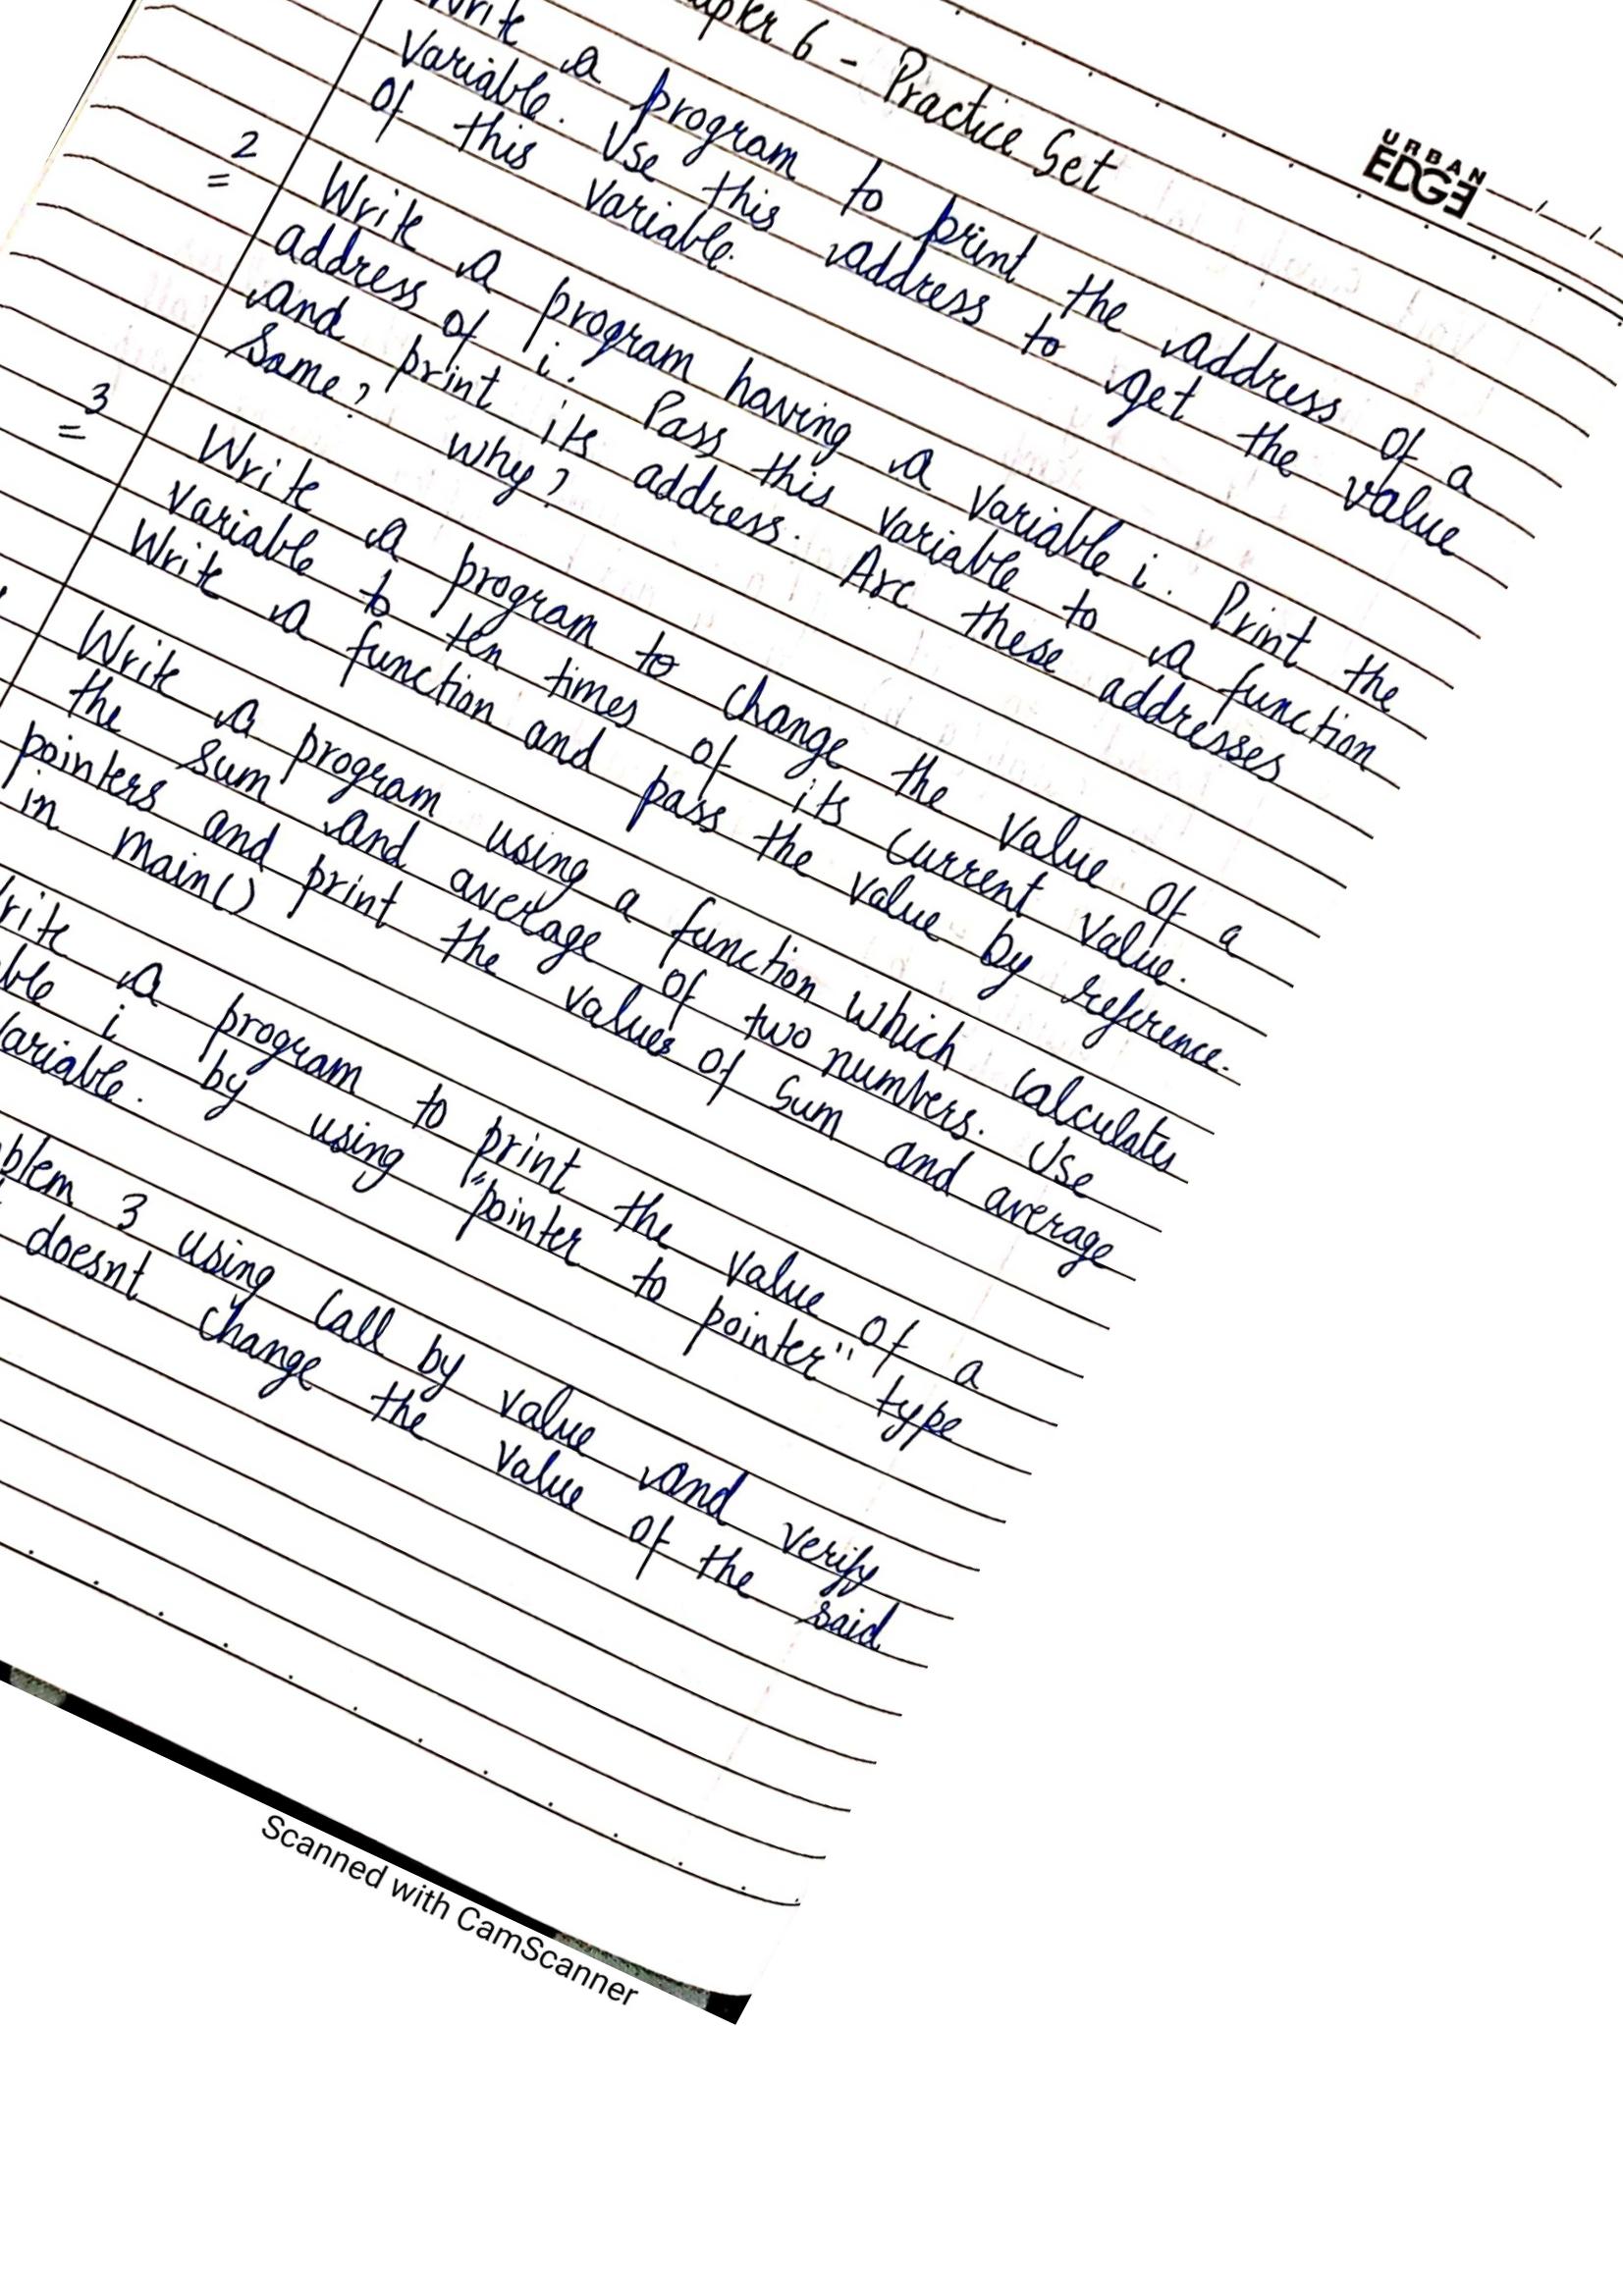 Chapter 6 - Practice Set
URBAN
EDGE
Write a program to print the address of a
variable. Use this address to get the value
of this variable.
2
Write a program having a variable i. Print the
address of i. Pass this variable to a function
and print its address. Are these addresses
same? why?
3
Write a program to change the value of a
variable to ten times of its current value.
Write a function and pass the value by reference.
Write a program using a function which calculates
the sum and average of two numbers. Use
pointers and print the values of sum and average
in main()
rite a program to print the value of a
ble i by using "pointer to pointer" type
variable.
blem 3 using call by value and verify
doesnt change the value of the said
Scanned with CamScanner